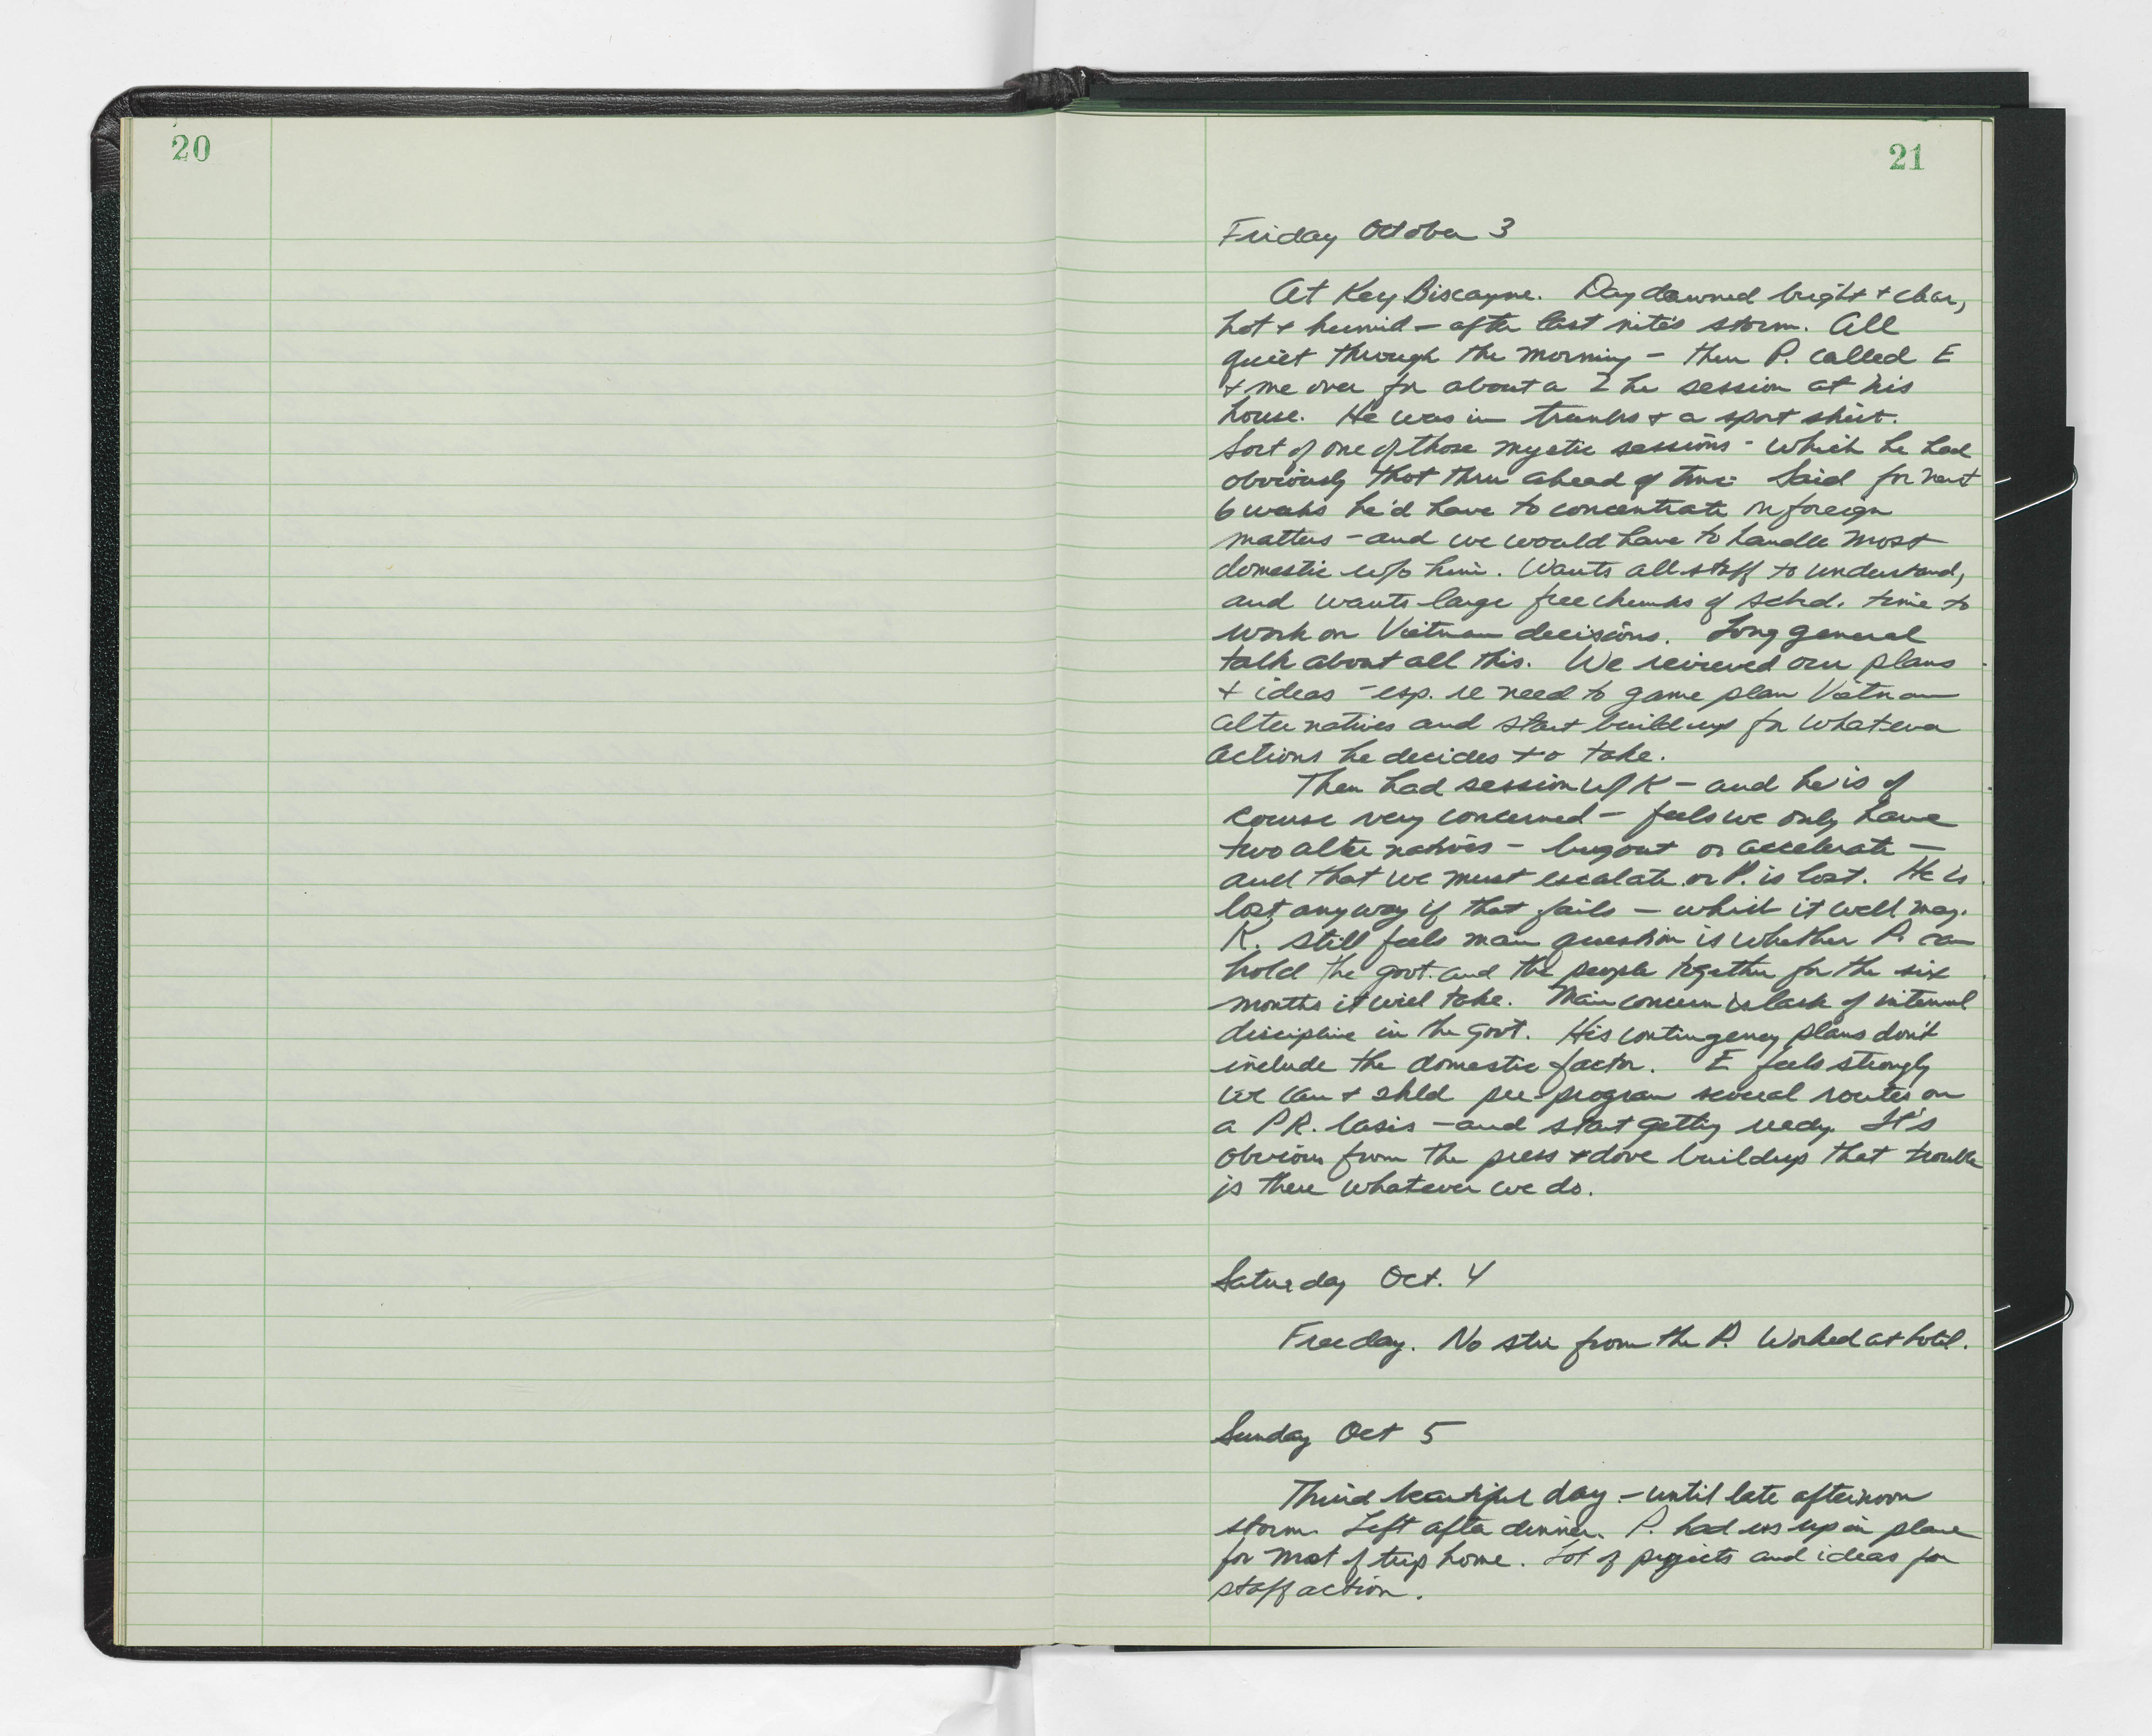 20
21
Friday October 3
At Key Biscayne. Day dawned bright + clear,
hot + humid - after last nite's storm. All
quiet through the morning - then P. called E
+ me over for about a 2 hr session at his
house. He was in trunks + a sport shirt.
Sort of one of those mystic sessions - which he had
obviously thot thru ahead of time. Said for next
6 weeks he'd have to concentrate on foreign
matters - and we would have to handle most
domestic w/o him. Wants all staff to understand,
and wants large free chunks of sched. time to
work on Vietnam decisions. Long general
talk about all this. We reviewed our plans
+ ideas - esp. re need to game plan Vietnam
alternatives and start buildup for whatever
actions he decides to take.
Then had session w/ K - and he is of
course very concerned - feels we only have
two alternatives - bugout or accelerate -
and that we must escalate or P. is lost. He is
lost anyway if that fails - which it well may.
K. still feels main question is whether P. can
hold the govt. and the people together for the six
months it will take. Main concern is lack of internal
discipline in the govt. His contingency plans don't
include the domestic factor. E feels strongly
we can + shld pre-program several routes on
a P.R. basis - and start getting ready. It's
obvious from the press + dove buildup that trouble
is there whatever we do.
Saturday Oct. 4
Free day. No stir from the P. Worked at hotel.
Sunday Oct 5
Third beautiful day - until late afternoon
storm. Left after dinner. P. had us up in plane
for most of trip home. Lot of projects and ideas for
staff action.